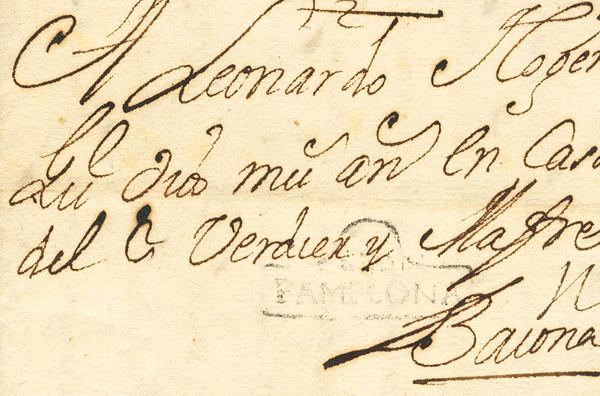 12
A Leonardo Roger
que Dios mu an en Casa
del S Verdier y Maffre
PAMPLONA
Baiona